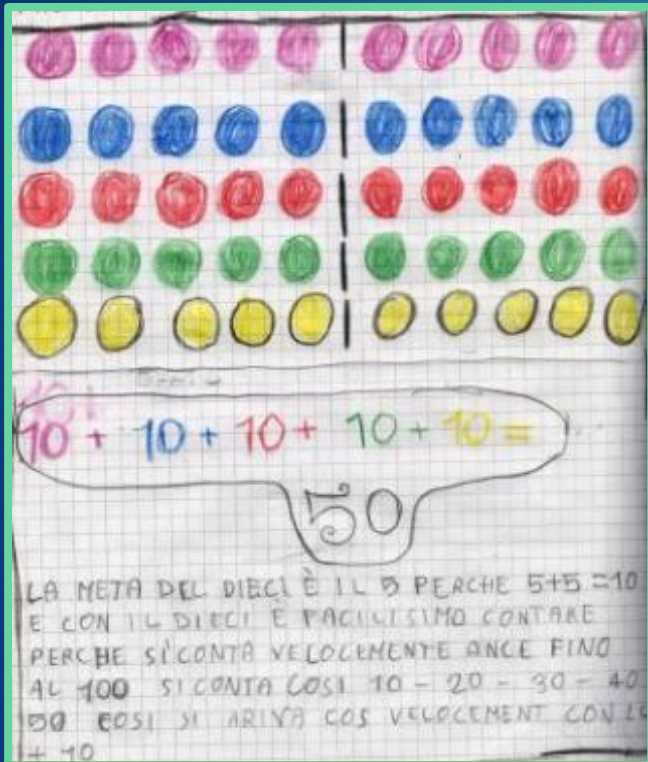 10 + 10 + 10 + 10 + 10 =
50
LA META DEL DIECI È IL 5 PERCHE 5+5=10
E CON IL DIECI È FACILISIMO CONTARE
PERCHE SI CONTA VELOCEMENTE ANCE FINO
AL 100 SI CONTA COSI 10 - 20 - 30 - 40
50 COSI SI ARIVA COS VELOCEMENT CON
+ 10